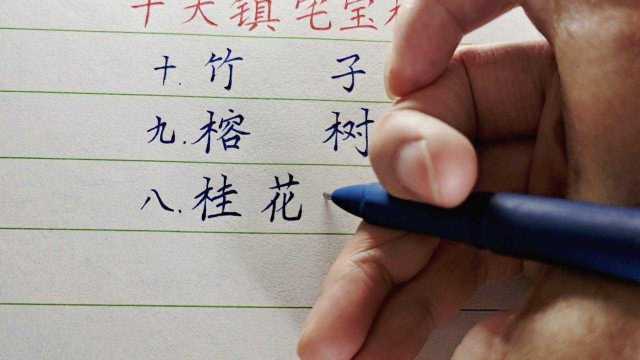 十大镇宅宝
十.竹子
九.榕树
八.桂花